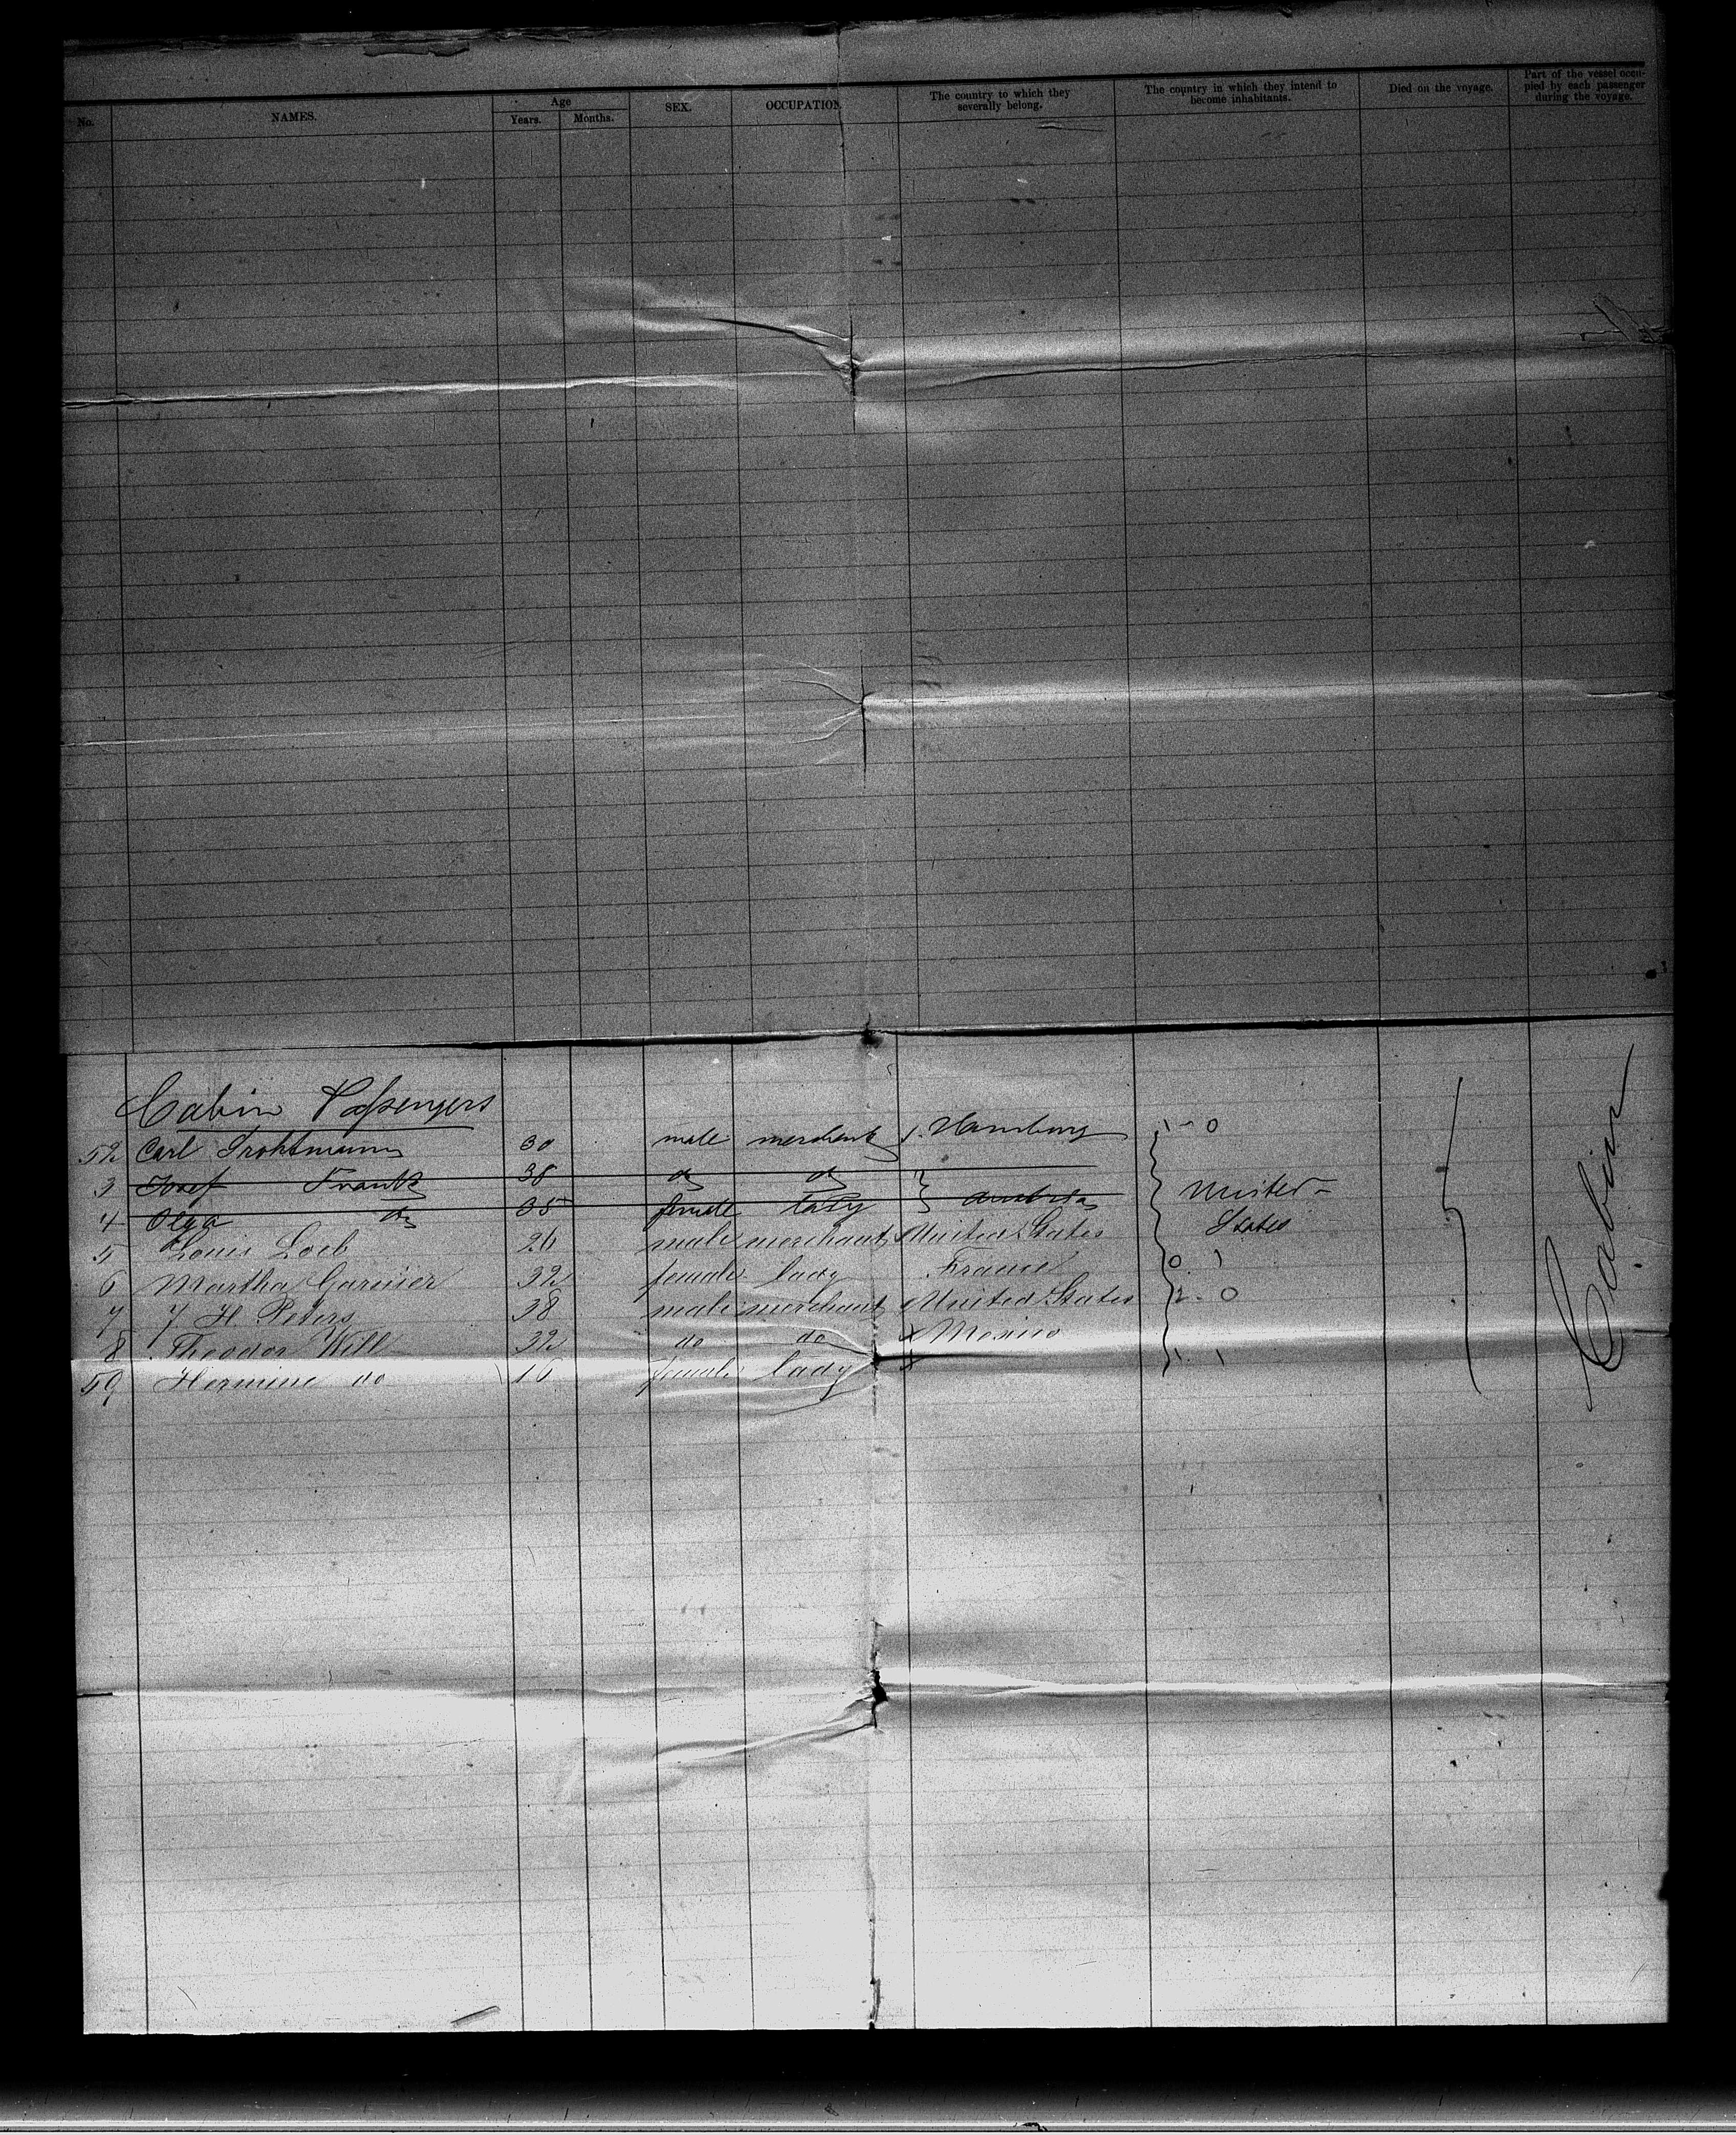 No. NAMES. Age Years. Months. SEX. OCCUPATION. The country to which they severally belong. The country in which they intend to become inhabitants. Died on the voyage. Part of the vessel occupied by each passenger during the voyage.
Cabin Passengers
52 Carl 30 male merchant Hamburg 1 - 0
3 Josef Frank 38 do do
4 Olga do 35 female lady Austria United States
5 Louis Loeb 26 male merchant United States
6 Martha Garnier 32 female lady France 0. 1
7 J H Peters 38 male merchant United States 2 - 0
8 Theodor Will 32 do do Mexico
59 Hermine do 16 female lady 1. 1
Cabin